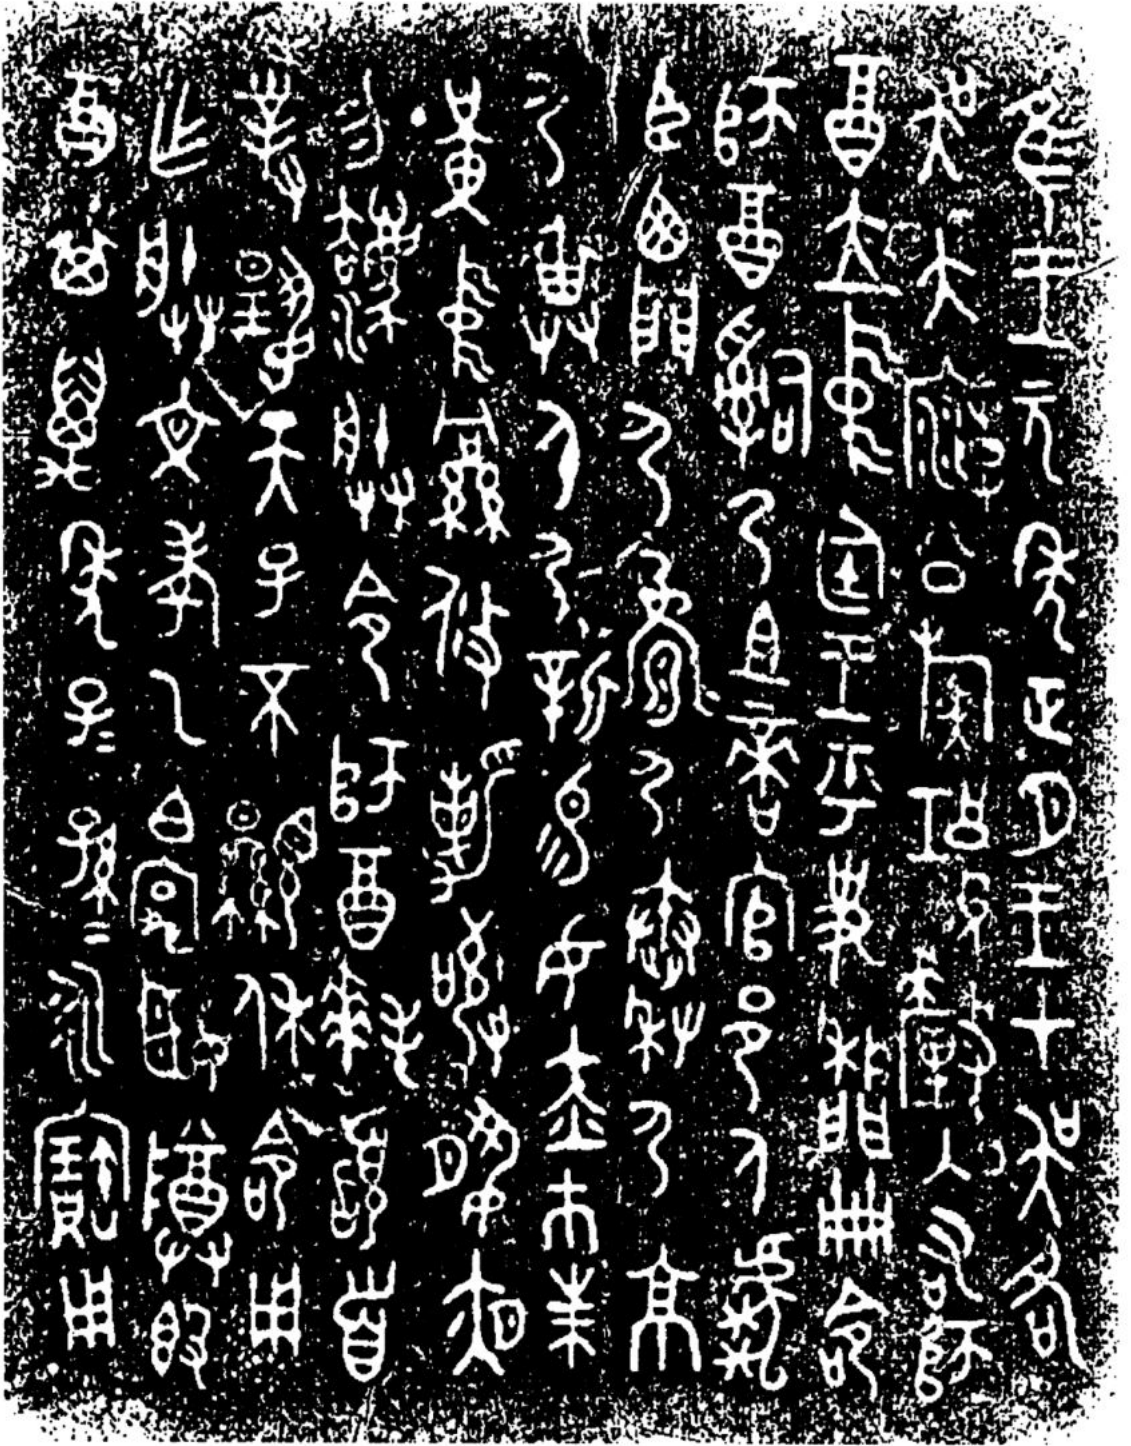 隹王元年正月王才吳各
吳大廟公族釐入右師
酉立中廷王乎史牆冊命
師酉𤔲乃且啻官邑人虎
臣西門尸尸秦尸京
尸畀身尸新易女赤巿朱
黃中絅攸勒敬夙夜
勿灋朕令師酉拜𩒨首
對揚天子不顯休命用
乍朕文考乙白宄姬𢍜𣪘
酉其萬年子=孫=永寶用